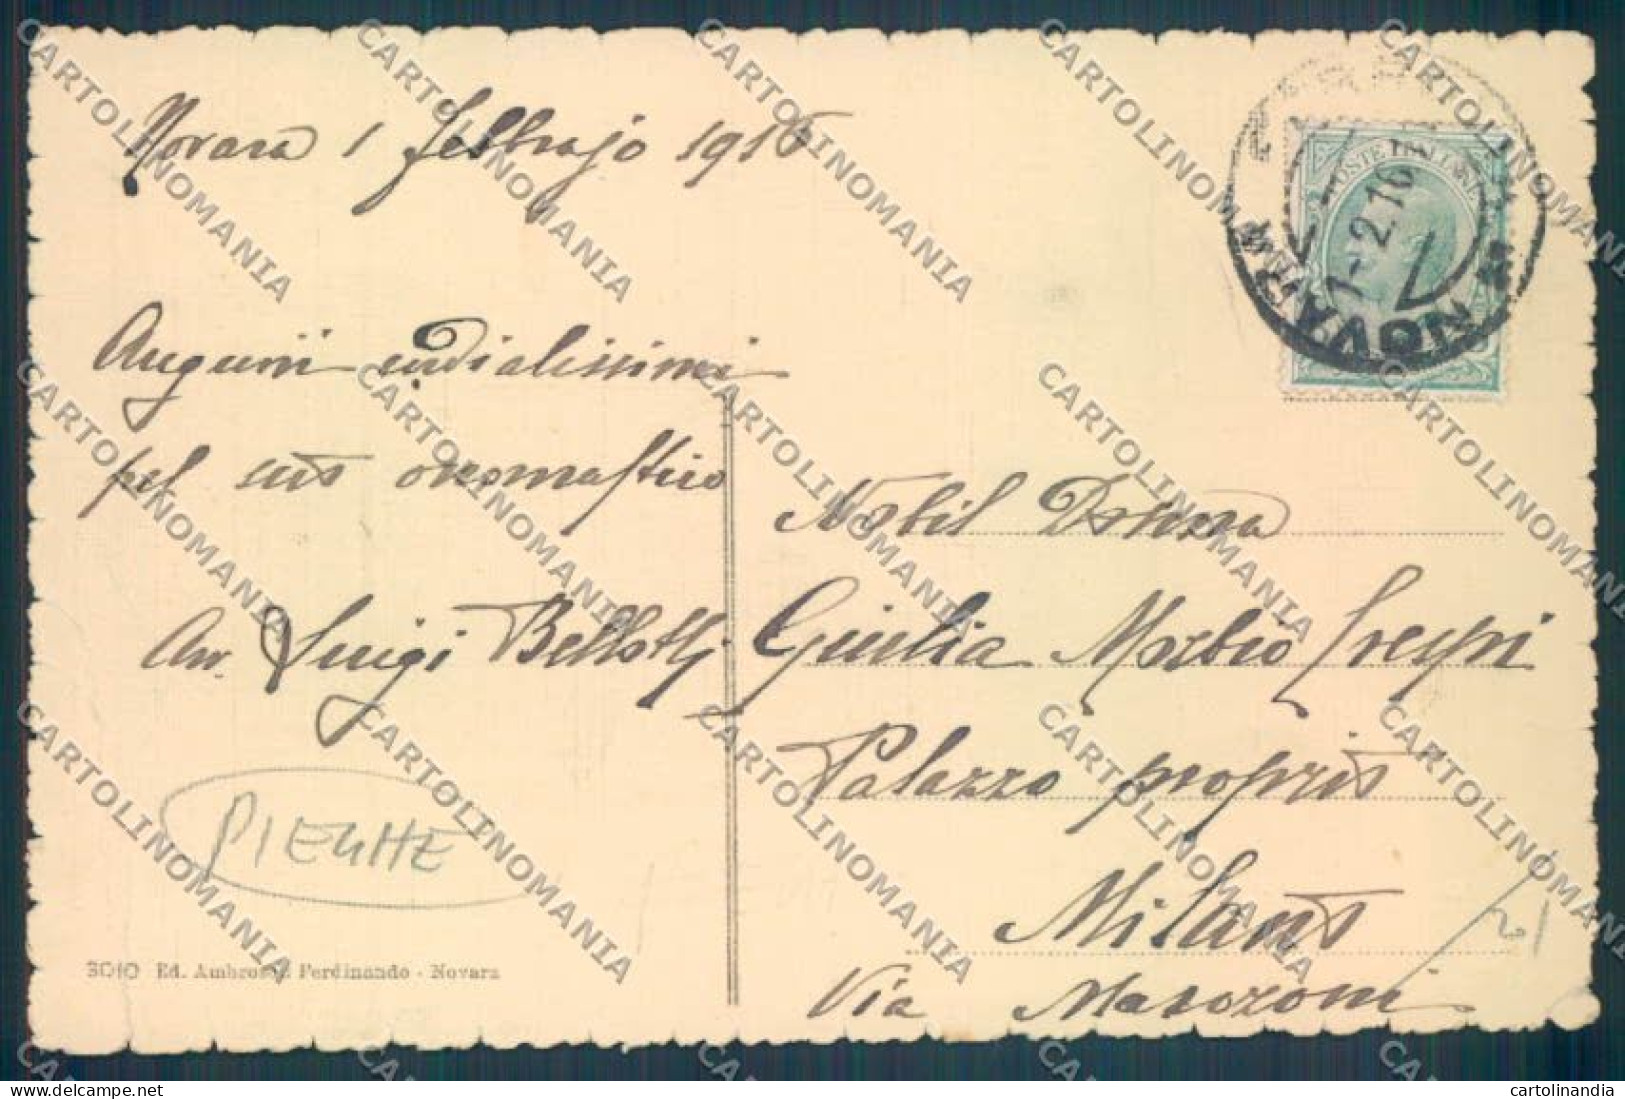 Novara 1 febbrajo 1916
Auguri cordialissimi
pel suo onomastico
Av. Luigi Bellotti
POSTE ITALIANE
1-2.16
NOVARA
Nobil Donna
Giulia Morbio Crespi
Palazzo proprio
Milano
Via
PIEGHE
21
3010 Ed. Ambrosini Ferdinando - Novara
CARTOLINOMANIA
cartolinandia